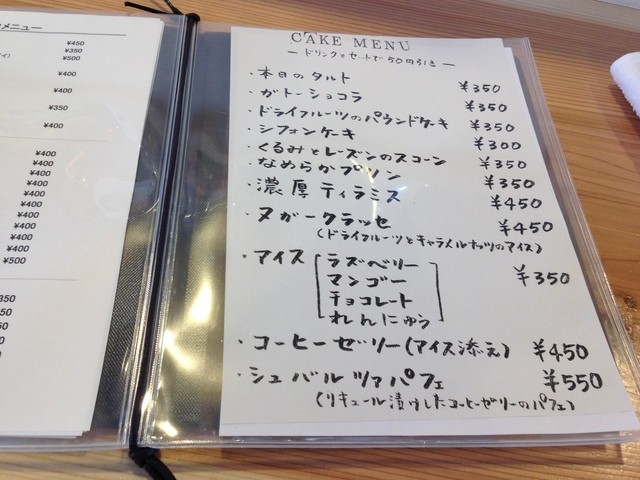 メニュー
¥450
¥350
¥500
¥400
¥400
¥350
¥400
¥400
¥400
¥400
¥400
¥400
¥400
¥400
¥400
¥500
CAKE MENU
ー ドリンクとセットで50円引き ー
・本日のタルト ¥350
・ガトーショコラ ¥350
・ドライフルーツのパウンドケーキ ¥350
・シフォンケーキ ¥300
・くるみとレーズンのスコーン ¥350
・なめらかプリン ¥350
・濃厚ティラミス ¥450
・ヌガークラッセ ¥450
(ドライフルーツとキャラメルナッツのアイス)
・アイス [ラズベリー
マンゴー
チョコレート
れんにゅう] ¥350
・コーヒーゼリー(アイス添え) ¥450
・シュバルツァパフェ ¥550
(リキュール漬けしたコーヒーゼリーのパフェ)